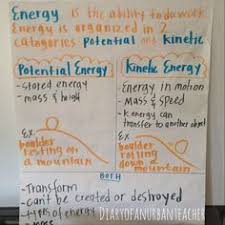 Energy is the ability to do work.
Energy is organized in 2
categories potential and kinetic
Potential Energy
- stored energy
- mass & height
Ex
boulder
resting on
a mountain
Kinetic Energy
- Energy in motion
- Mass & speed
- Energy can
transfer to another object
Ex
boulder
rolling
down a
mountain
Both
- Transform
- can't be created or destroyed
- types of energy
- mass
DIARYOFANURBANTEACHER